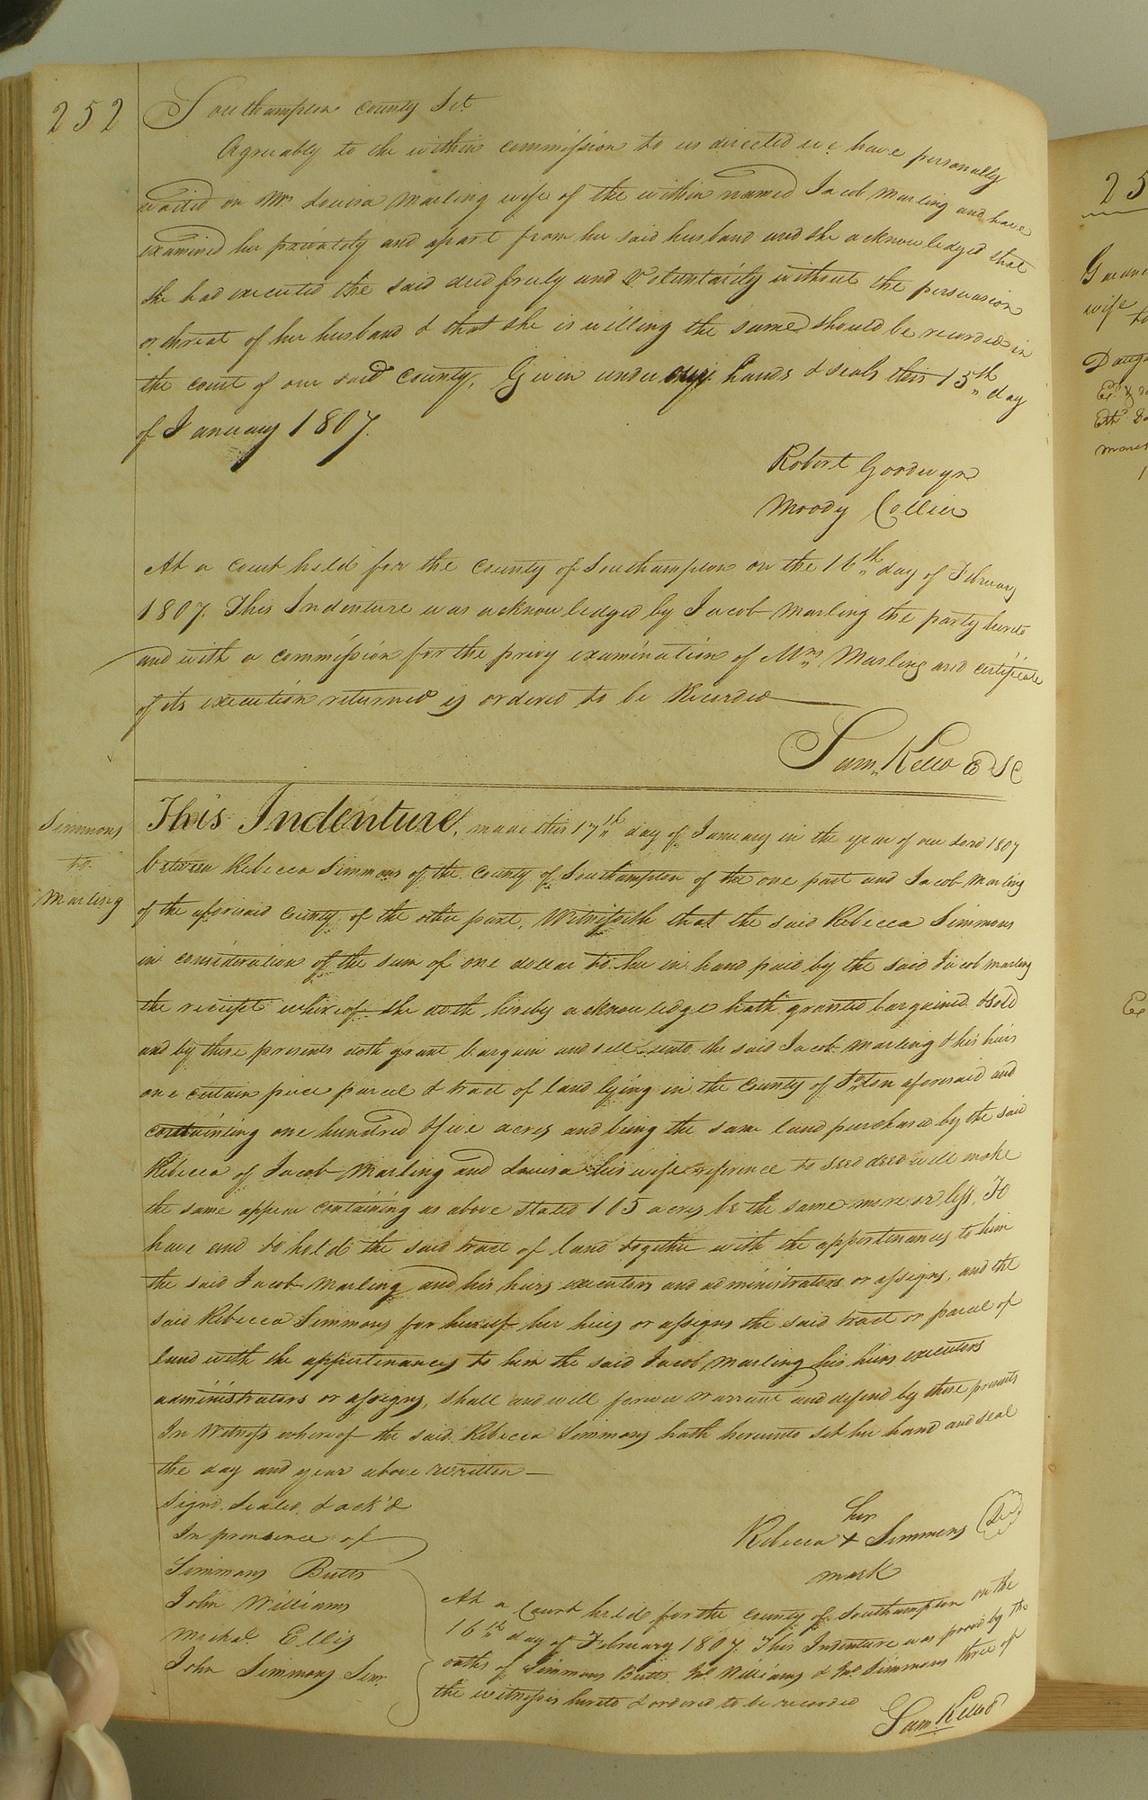 252
Southampton County Sct
Agreeably to the within commission to us directed we have personally
waited on Mrs Louisa Marling wife of the within named Jacob Marling and have
examined her privately and apart from her said husband and she acknowledged that
she had executed the said deed freely and Voluntarily without the persuasion
or threat of her husband & that she is willing the same should be recorded in
the court of our said County, Given under our hands & seals this 15th day
of January 1807.
Robert Goodwyn
Moody Collier
At a court held for the county of Southampton on the 16th day of February
1807. This Indenture was acknowledged by Jacob Marling the party hereto
and with a commission for the privy examination of Mrs Marling and certificate
of its execution returned is ordered to be Recorded
Sam. Kello
Simmons
to
Marling
This Indenture, made this 17th day of January in the year of our Lord 1807
between Rebecca Simmons of the County of Southampton of the one part and Jacob Marling
of the aforesaid County of the other part, Witnesseth that the said Rebecca Simmons
in consideration of the sum of one dollar to her in hand paid by the said Jacob Marling
the receipt whereof she doth hereby acknowledge hath granted bargained & sold
and by these presents doth grant bargain and sell unto the said Jacob Marling & his heirs
one certain piece parcel & tract of land lying in the County of Ston aforesaid and
containing one hundred & five acres and being the same land purchased by the said
Rebecca of Jacob Marling and Louisa his wife reference to said deed will make
the same appear containing as above stated 105 acres, be the same more or less. To
have and to hold the said tract of land together with the appertenances to him
the said Jacob Marling and his heirs executors and administrators or assigns, and the
said Rebecca Simmons for herself her heirs or assigns the said tract or parcel of
land with the appertenances to him the said Jacob Marling his heirs executors
administrators or assigns, shall and will forever warrant and defend by these presents
In Witness whereof the said Rebecca Simmons hath hereunto set her hand and seal
the day and year above written
Signd. Sealed, & ack'd
In presence of
Simmons Butts
John Williams
Michal. Ellis
John Simmons Senr.
her
Rebecca + Simmons
mark
At a Court held for the county of Southampton on the
16th day of February 1807. This Indenture was proved by the
oaths of Simmons Butts, Jno. Williams & Jno. Simmons three of
the witnesses hereto & ordered to be recorded
Sam. Kello
25
wife to